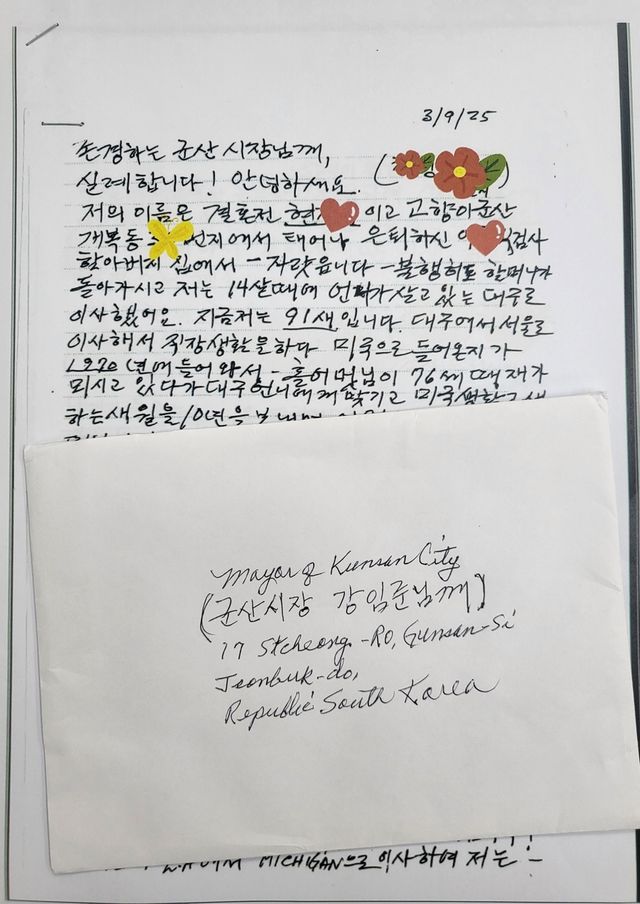 3/9/25
존경하는 군산 시장님께,
실례합니다! 안녕하세요. (
저의 이름은 결혼전 현 이고 고향이군산
개복동 번지에서 태어나 은퇴하신 검사
할아버지 집에서 - 자랏읍니다 - 불행히도 할머니가
돌아가시고 저는 14살때에 언니가 살고 있는 대구로
이사했어요. 지금저는 91세입니다. 대구에서 서울로
이사해서 직장생활을하다 미국으로 들어온지가
1970년에 들어와서 - 홀어머님이 76세 때
모시고 있다가 대구언니에게 맞기고 미국생활
하는세월을 10년을
Mayor of Kunsan City
(군산시장 강임준님께)
17 Stcheong-Ro, Gunsan-Si
Jeonbuk-do,
Republic South Korea
MICHIGAN으로 이사하여 저는